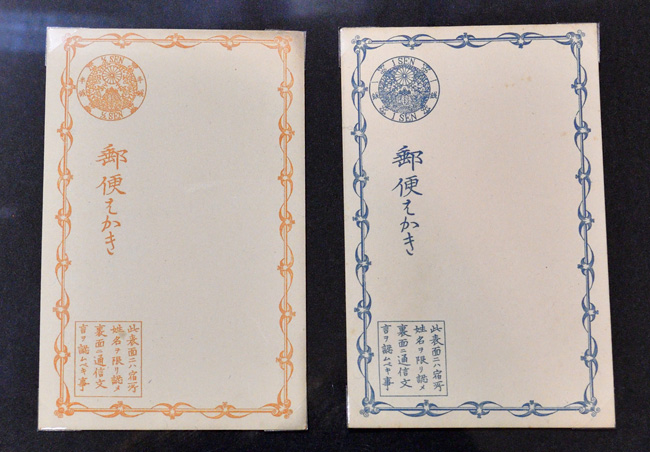 ½ SEN
½ SEN
郵便はかき
此表面ニハ宿所
姓名ヲ限リ認メ
裏面ニ通信文
言ヲ認ムベキ事
1 SEN
1 SEN
郵便はかき
此表面ニハ宿所
姓名ヲ限リ認メ
裏面ニ通信文
言ヲ認ムベキ事